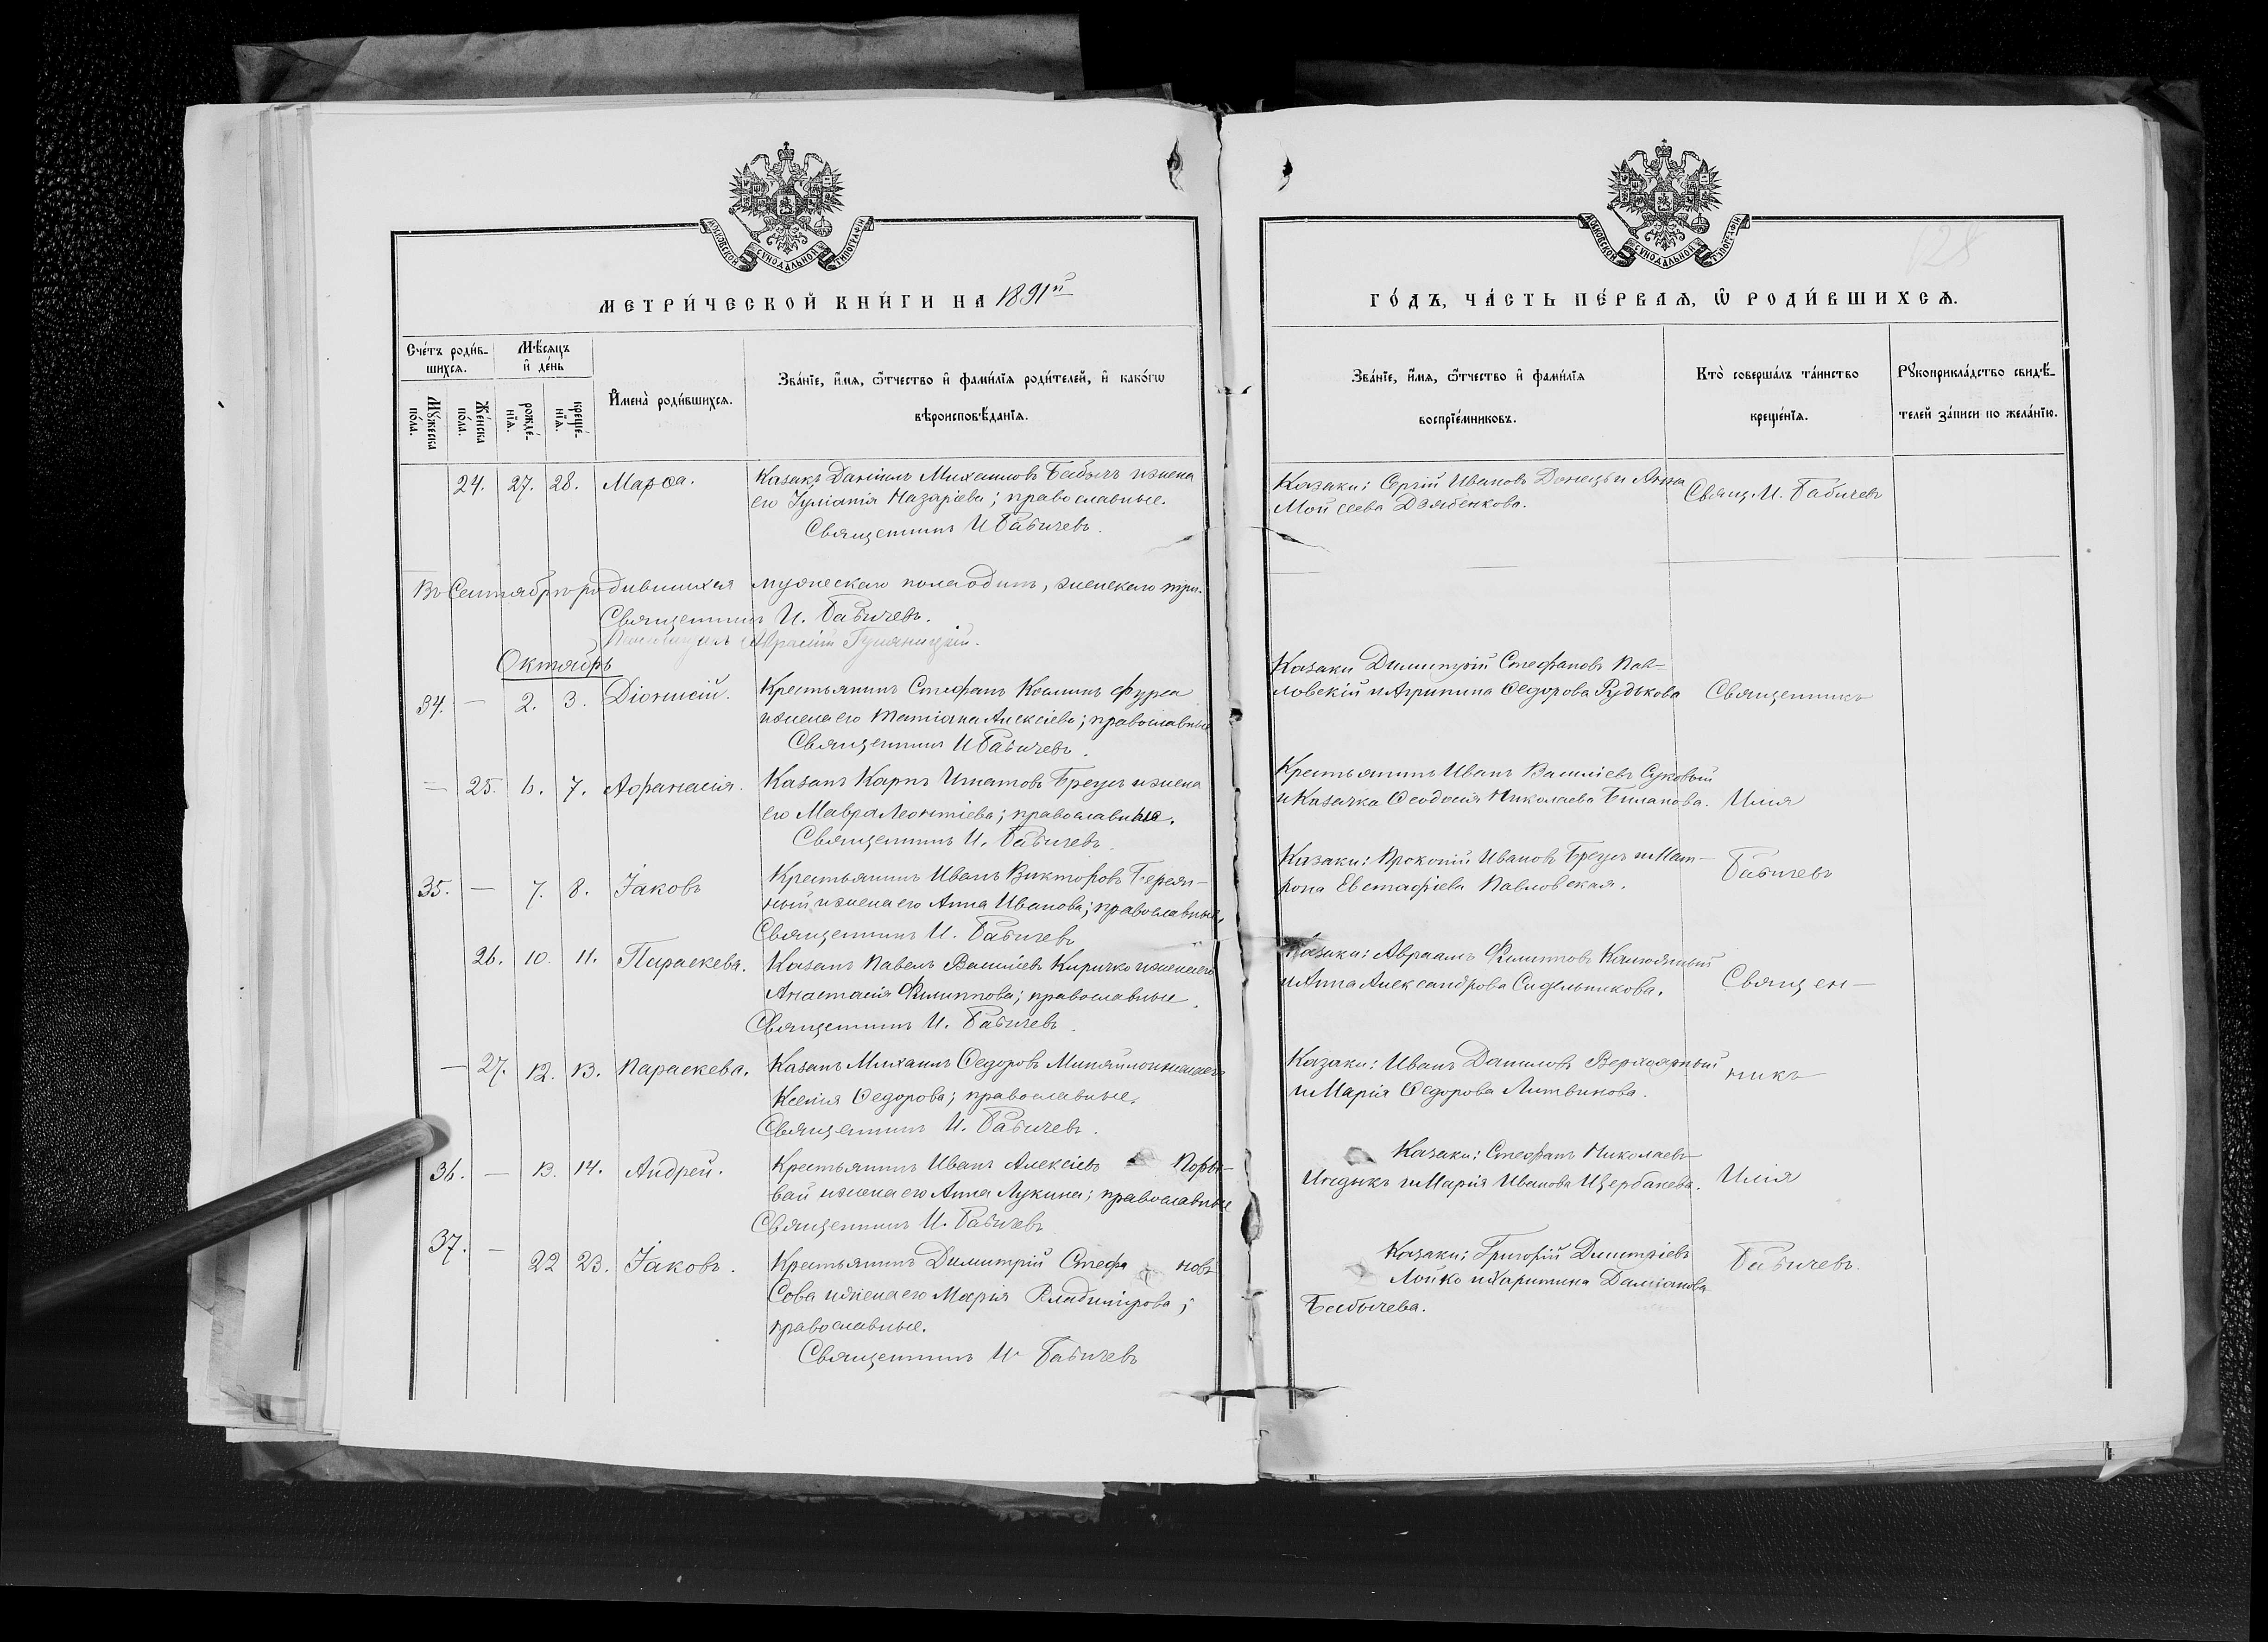 МОСКОВСКОЙ СѴНОДАЛЬНОЙ ТИПОГРАФІИ
МЕТРИ́ЧЕСКОЙ КНИ́ГИ НА 1891й
Сче́тъ роди́в-
шихсѧ.
Мѣ́сѧцъ
и҆ де́нь
Мꙋ́жеска
по́ла.
Же́нска
по́ла.
рожде́-
нїѧ.
креще́-
нїѧ.
И҆мена̀ роди́вшихсѧ.
Зва́нїе, и҆́мѧ, ѻ҆́тчество и҆ фами́лїѧ роди́телей, и҆ како́гѡ
вѣроисповѣ́данїѧ.
24. 27. 28. Марѳа. Казакъ Даніилъ Михаиловъ Бабычъ и жена
его Іуліанія Назаріева; православные.
Священникъ И Бабичевъ.
Въ Сентябрѣ родившихся мужескаго пола одинъ, женскаго три.
Священникъ И. Бабичевъ.
Октябрь
34. — 2. 3. Діонисій. Крестьянинъ Стефанъ Козминъ Фурса
и жена его Татіана Алексіева; православные
Священникъ И Бабичевъ.
— 25. 6. 7. Аѳанасія. Казакъ Карпъ Игнатовъ Брегуъ и жена
его Мавра Леонтіева; православные.
Священникъ И. Бабичевъ.
35. — 7. 8. Іаковъ Крестьянинъ Иванъ Викторовъ Береж-
ный и жена его Анна Иванова; православные.
Священникъ И. Бабичевъ
26. 10. 11. Параскева. Казакъ Павелъ Василіевъ Киричко и жена его
Анастасія Филиппова; православные.
Священникъ И. Бабичевъ.
— 27. 12. 13. Параскева. Казакъ Михаилъ Ѳедоровъ и жена его
Ксенія Ѳедорова; православные.
Священникъ И. Бабичевъ.
36. — 13. 14. Андрей. Крестьянинъ Иванъ Алексіевъ Поры-
вай и жена его Анна Лукина; православные
Священникъ И. Бабичевъ
37. — 22 23. Іаковъ. Крестьянинъ Димитрій Стефановъ
Сова и жена его Марія Владимірова;
православные.
Священникъ И. Бабичевъ
128
МОСКОВСКОЙ СѴНОДАЛЬНОЙ ТИПОГРАФІИ
ГО́ДЪ, ЧА́СТЬ ПЕ́РВАѦ, Ѡ҆ РОДИ́ВШИХСѦ.
Зва́нїе, и҆́мѧ, ѻ҆́тчество и҆ фами́лїѧ
воспрїе́мниковъ.
Кто̀ соверша́лъ та́инство
креще́нїѧ.
Рꙋкоприкла́дство свидѣ́-
телей за́писи по жела́нїю.
Казаки: Сергій Ивановъ Донецъ и Анна
Мойсеева Дзябенкова.
Свящ. И. Бабичевъ
Казаки Димитрій Стефановъ Пав-
ловскій и Агрипина Ѳедорова Рудькова
Священникъ
Крестьянинъ Иванъ Василіевъ Суковый
и Казачка Ѳеодосія Николаева Биланова.
Илія
Казаки: Прокопій Ивановъ Брегуъ и Мат-
рона Евстафіева Павловская.
Бабичевъ
Казаки: Авраамъ Филипповъ
и Анна Александрова Сидельникова.
Священ-
Казаки: Иванъ Даниловъ
и Марія Ѳедорова Литвинова.
никъ
Казаки: Стефанъ Николаевъ
Индыкъ и Марія Иванова Щербакова.
Илія
Казаки: Григорій Дмитріевъ
Лойко и Харитина Даміанова
Бабычева.
Бабичевъ.